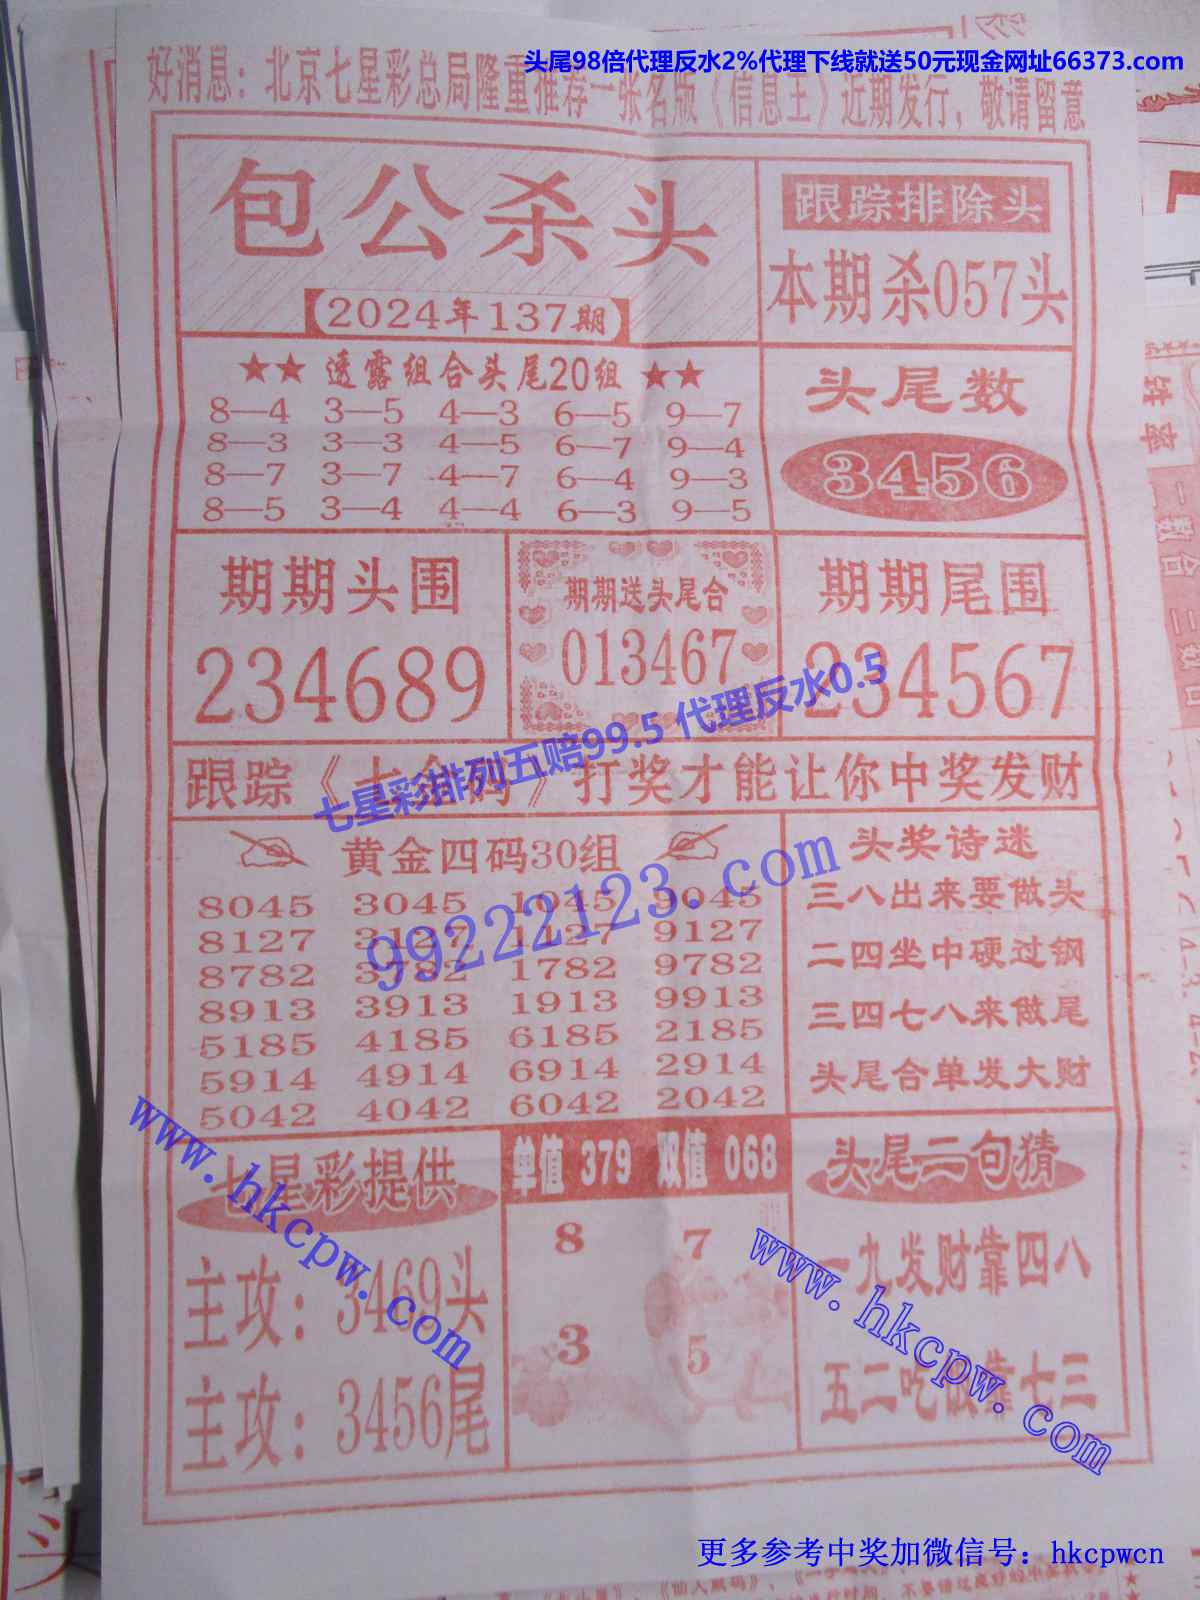 头尾98倍代理反水2%代理下线就送50元现金网址66373.com
好消息：北京七星彩总局隆重推荐一张名版《信息王》近期发行，敬请留意
包公杀头
【2024年137期】
跟踪排除头
本期杀057头
★★ 透露组合头尾20组 ★★
8—4 3—5 4—3 6—5 9—7
8—3 3—3 4—5 6—7 9—4
8—7 3—7 4—7 6—4 9—3
8—5 3—4 4—4 6—3 9—5
头尾数
3456
期期头围
234689
期期送头尾合
013467
期期尾围
234567
七星彩排列五赔99.5 代理反水0.5
跟踪《 》打奖才能让你中奖发财
99222123.com
黄金四码30组
8045 3045 1045 9045
8127 3127 1127 9127
8782 3782 1782 9782
8913 3913 1913 9913
5185 4185 6185 2185
5914 4914 6914 2914
5042 4042 6042 2042
头奖诗迷
三八出来要做头
二四坐中硬过钢
三四七八来做尾
头尾合单发大财
www.hkcpw.com
七星彩提供
主攻：3469头
主攻：3456尾
单值 379 双值 068
8 7
3 5
头尾二句猜
一九发财靠四八
五二吃饭靠七三
www.hkcpw.com
更多参考中奖加微信号：hkcpwcn